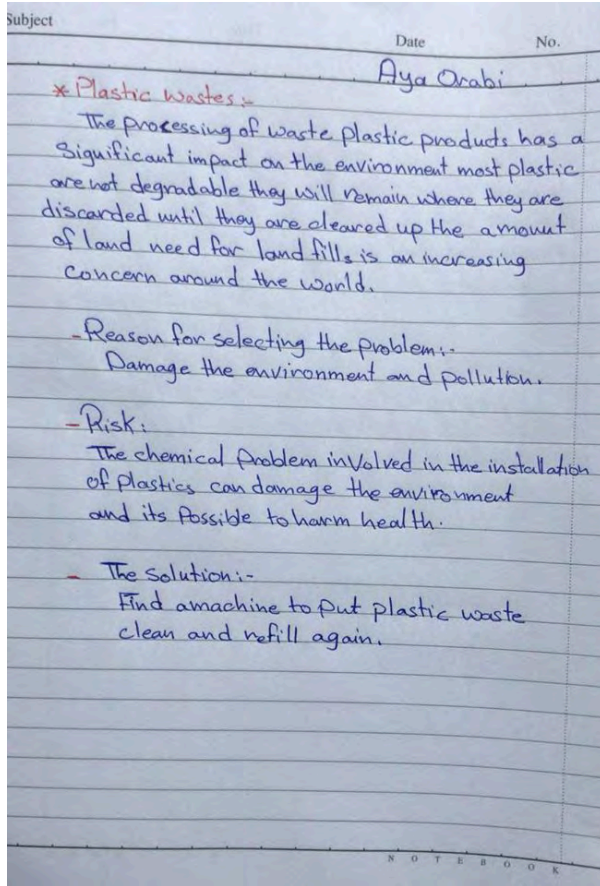 Subject
Date No.
Aya Orabi
* Plastic wastes:-
The processing of waste plastic products has a
Significant impact on the environment most plastic
are not degradable they will remain where they are
discarded until they are cleared up the amount
of land need for land fills is an increasing
Concern around the world.
- Reason for selecting the problem:-
Damage the environment and pollution.
- Risk:
The chemical problem involved in the installation
of plastics can damage the environment
and its Possible to harm health.
- The Solution:-
Find amachine to put plastic waste
clean and refill again.
NOTEBOOK